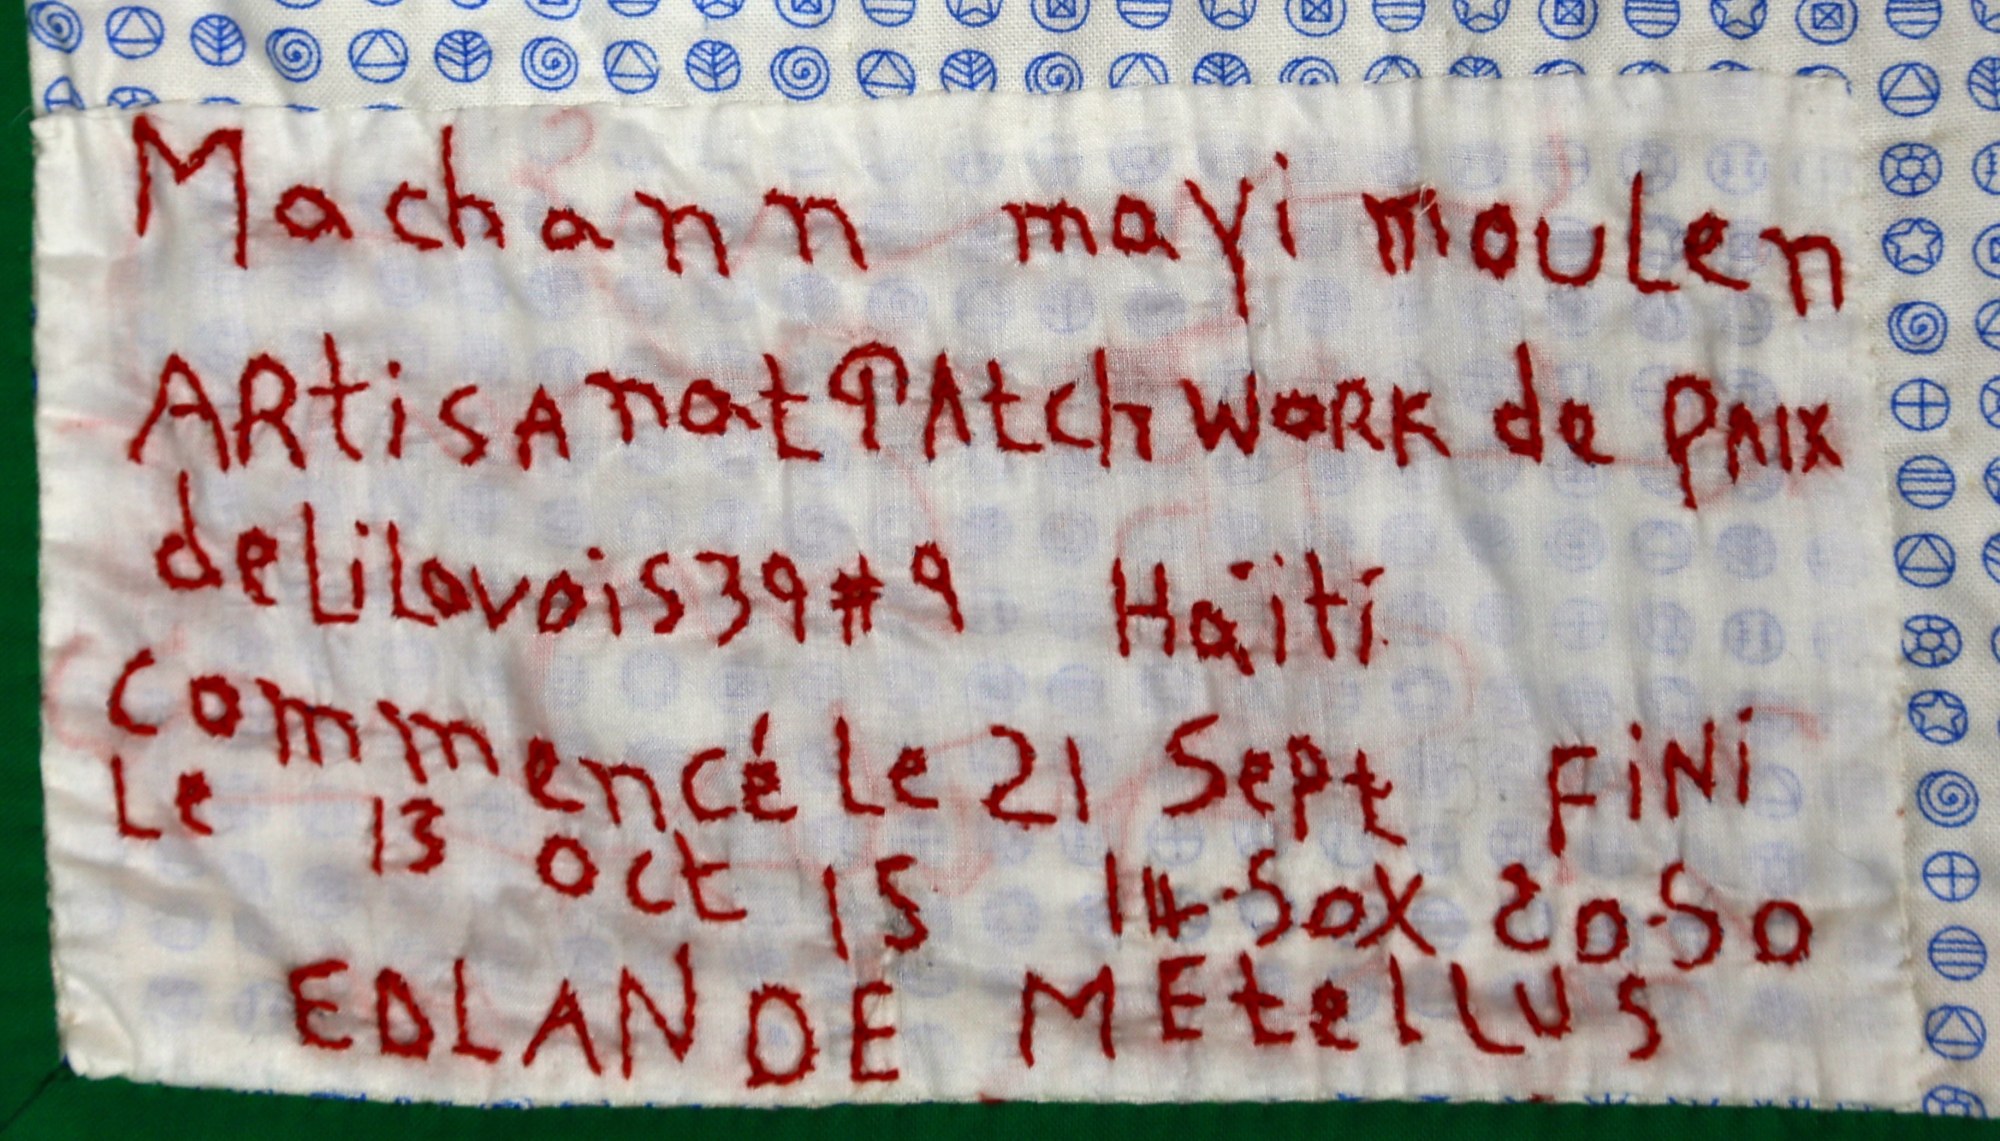 Machann mayi moulen
ARtisAnat PAtchwoRK de PAIX
de LiLavois 39 # 9 Haïti
Commencé Le 21 Sept FiNi
Le 13 Oct 15 14.50X 20.50
EDLANDE MEtelLUS